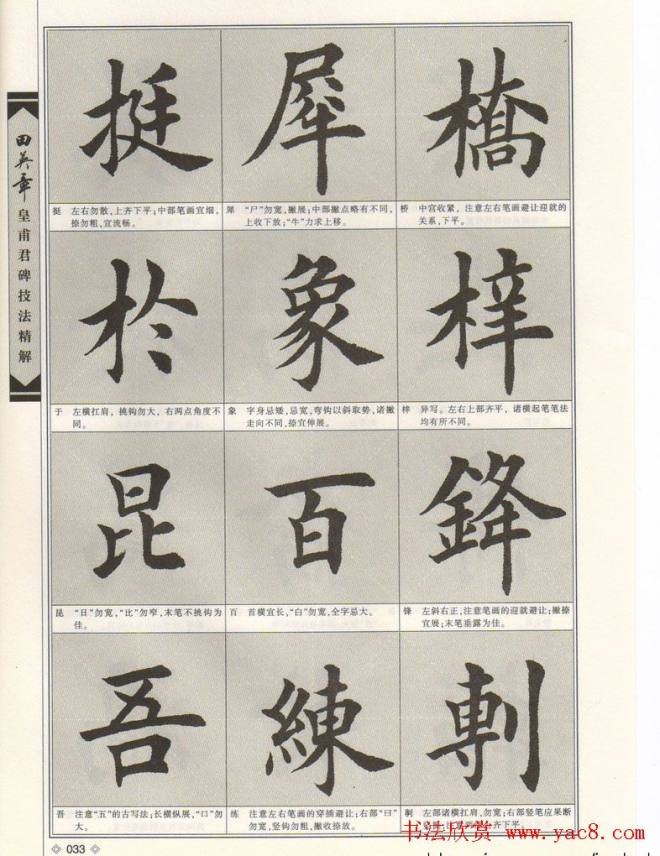 田英章
皇甫君碑技法精解
挺 犀 橋
挺 左右勿散,上齐下平;中部笔画宜细,
捺勿粗,宜流畅。
犀 “尸”勿宽,撇展;中部撇点略有不同,
上收下放;“牛”力求上移。
桥 中宫收紧,注意左右笔画避让迎就的
关系,下平。
於 象 梓
于 左横扛肩,挑钩勿大,右两点角度不
同。
象 字身忌矮,忌宽,弯钩以斜取势,诸撇
走向不同,捺宜伸展。
梓 异写。左右上部齐平,诸横起笔笔法
均有所不同。
昆 百 鋒
昆 “日”勿宽,“比”勿窄,末笔不挑钩为
佳。
百 首横宜长,“白”勿宽,全字忌大。
锋 左斜右正,注意笔画的迎就避让;撇捺
宜展;末笔垂露为佳。
吾 練 剸
吾 注意“五”的古写法;长横纵展,“口”勿
大。
练 注意左右笔画的穿插避让;右部“曰”
勿宽,竖钩勿粗,撇收捺放。
左部诸横扛肩,勿宽;右部竖笔应果断
勿齐下平。
033
书法欣赏 www.yac8.com